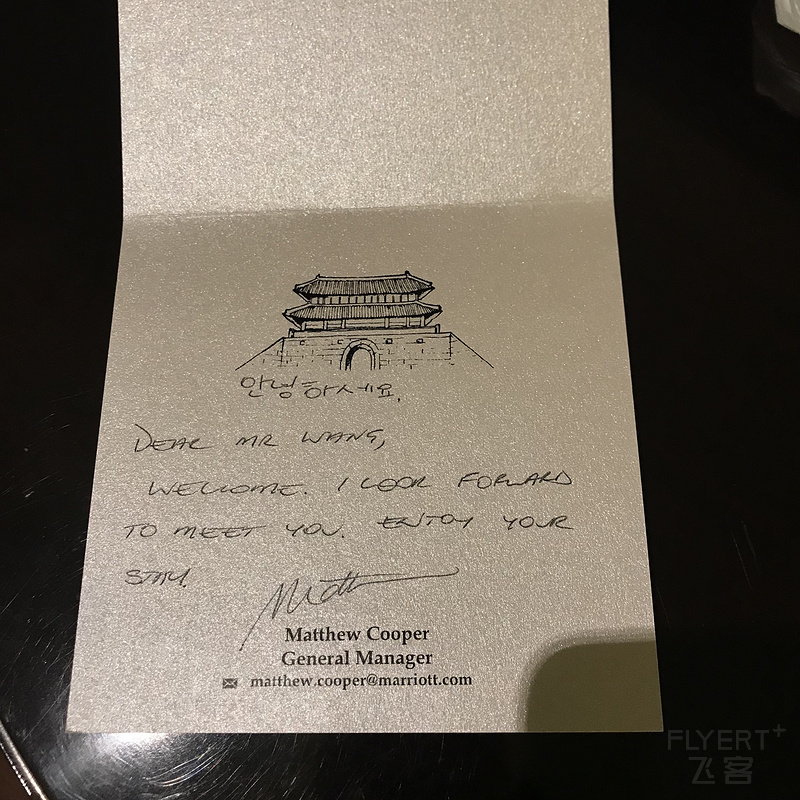 안녕하세요.
DEAR MR WANG,
WELCOME. I LOOK FORWARD
TO MEET YOU. ENJOY YOUR
STAY.
Matt
Matthew Cooper
General Manager
matthew.cooper@marriott.com
FLYERT+
飞客